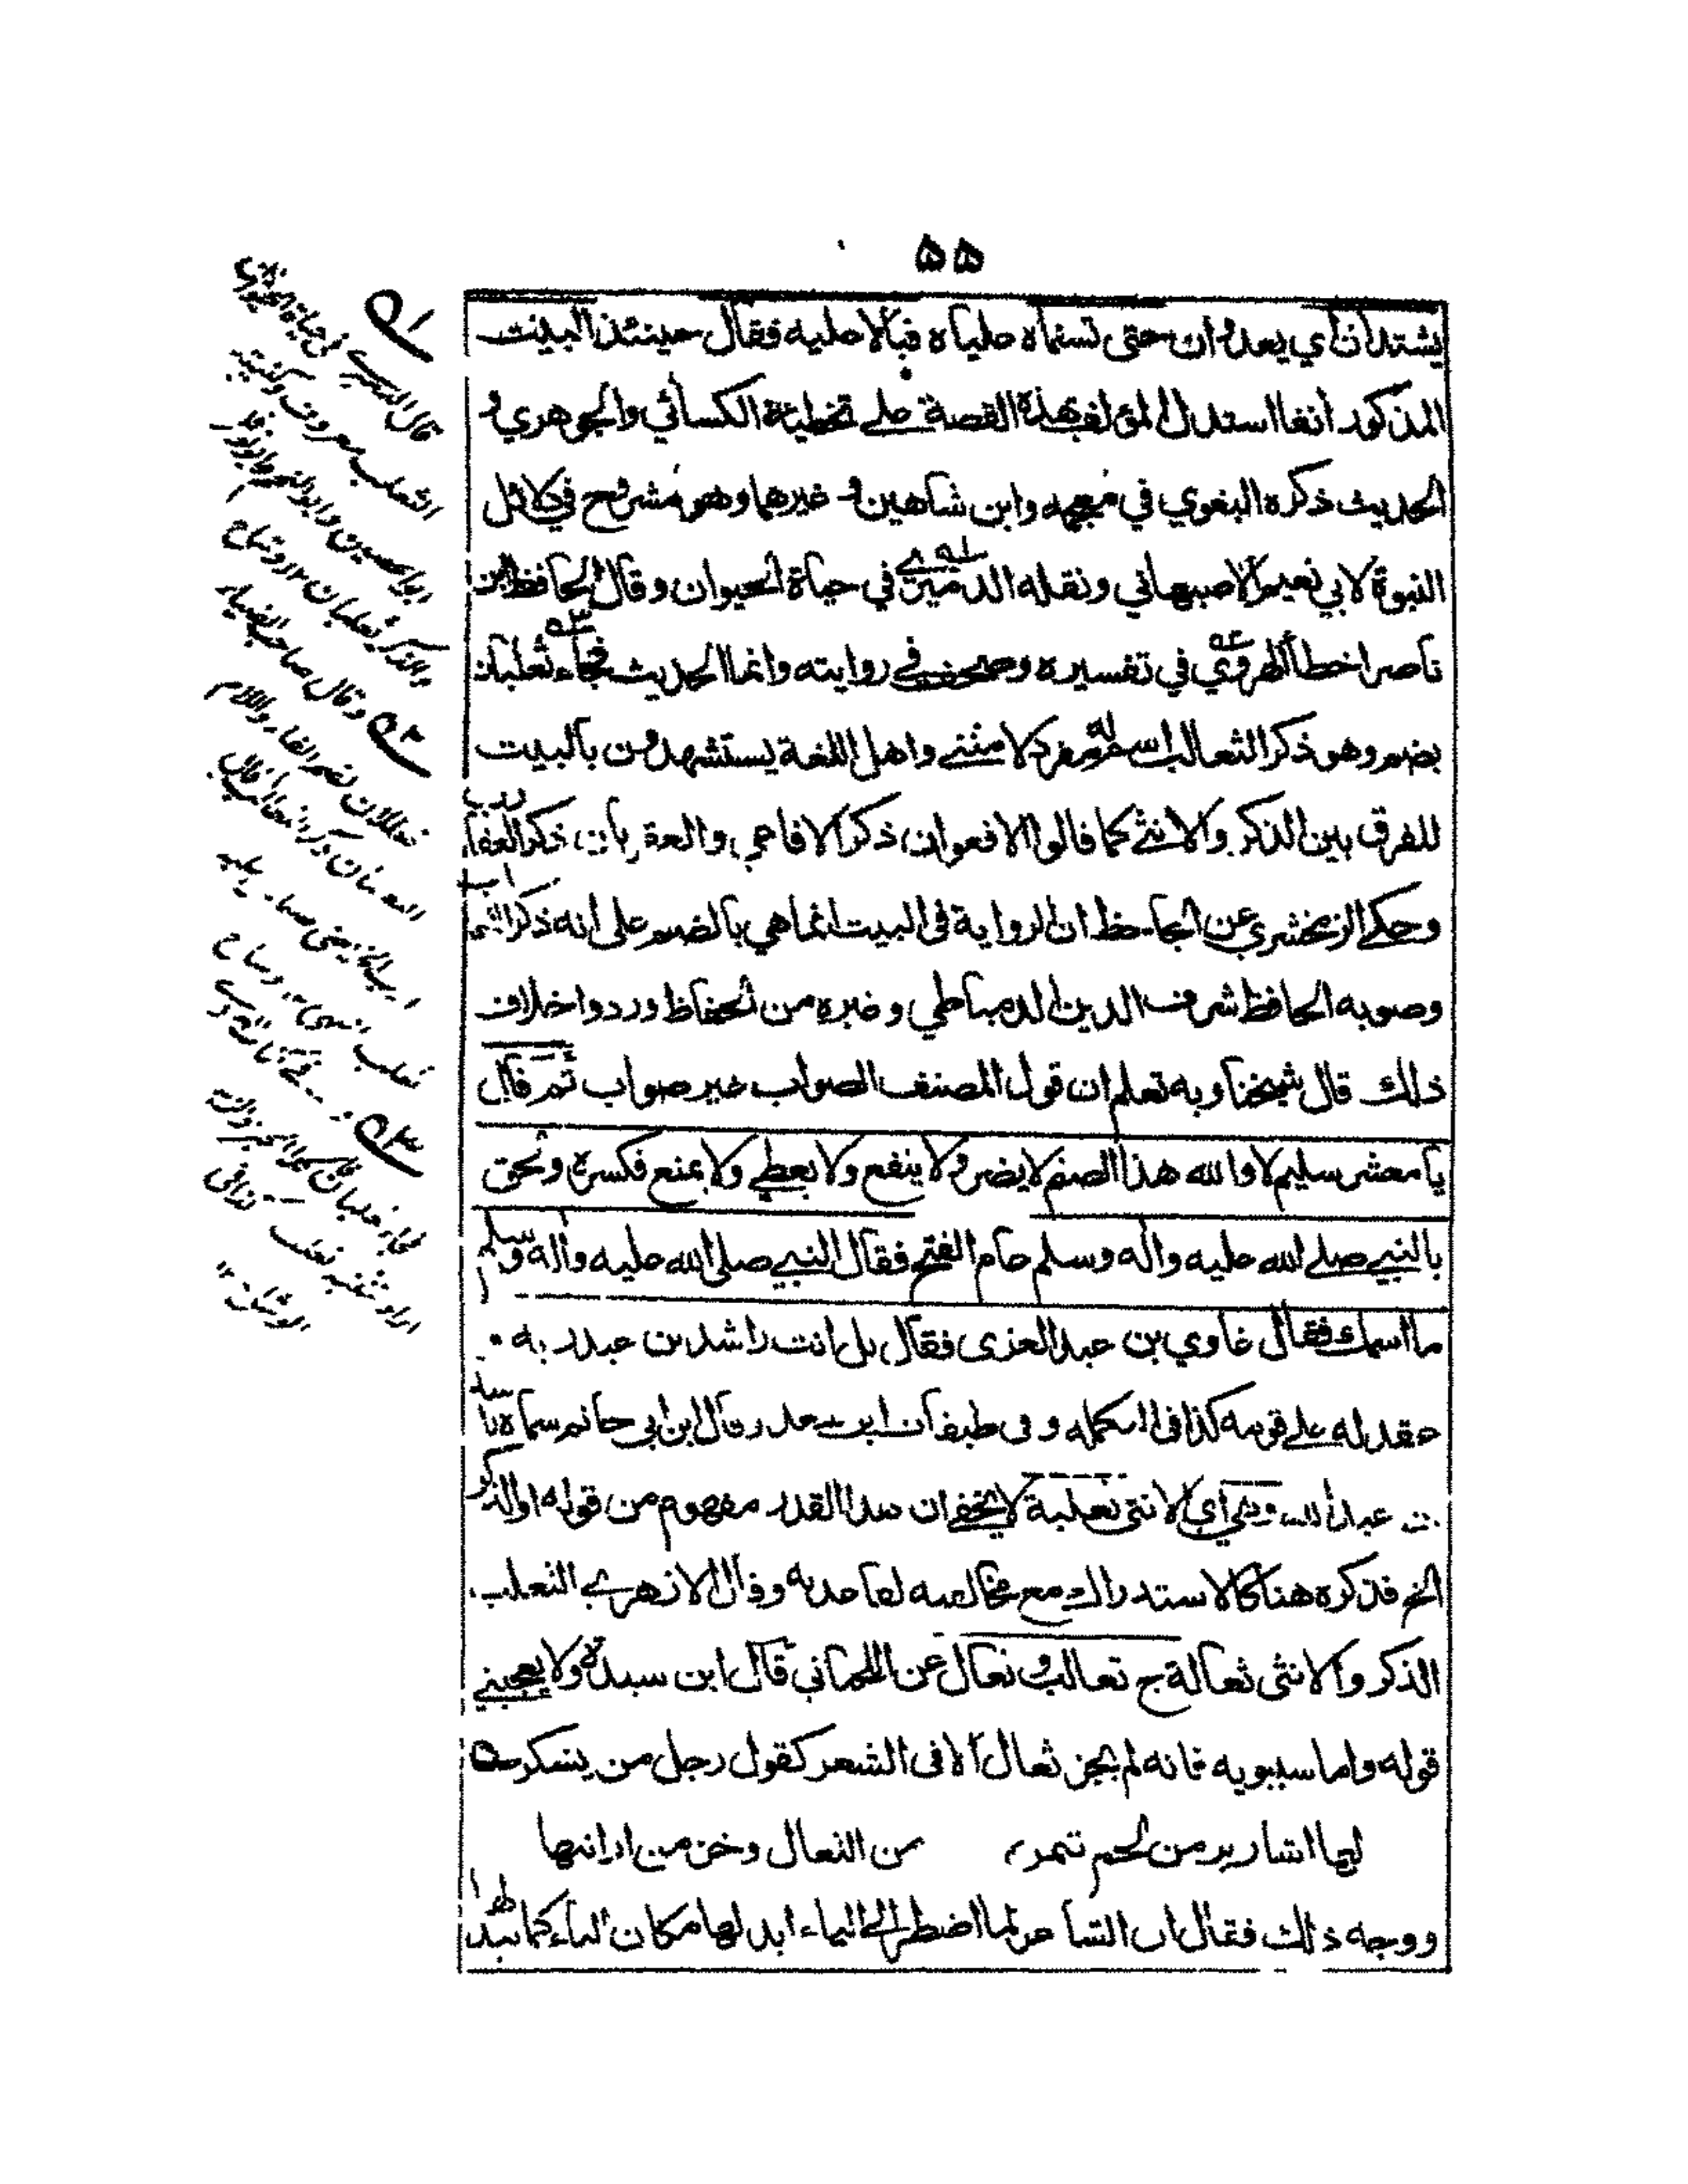 ۵۵
يشتدان اي يعدوان حتى تسنماه علياه فبالا عليه فقال حينئذ البيت
المذكور آنفا استدل المؤلف بهذه القصة على تخطئة الكسائي والجوهري و
الحديث ذكره البغوي في معجمه وابن شاهين و غيرهما وهو مشروح في دلائل
النبوة لابي نعيم الاصبهاني ونقله الدميري في حياة الحيوان وقال الحافظ ابن
ناصر اخطأ الهروي في تفسيره وصحف في روايته وانما الحديث فجاء ثعلبان
بضم وهو ذكر الثعالب اسم له مفرد لا مثنى واهل اللغة يستشهدون بالبيت
للفرق بين الذكر والانثى كما قالوا الافعوان ذكر الافاعي والعقربان ذكر العقارب
وحكى الزمخشري عن الجاحظ ان الرواية في البيت انما هي بالضم على انه ذكر الثعالب
وصوبه الحافظ شرف الدين الدمياطي وغيره من الحفاظ وردوا خلاف
ذلك قال شيخنا وبه تعلم ان قول المصنف الصواب غير صواب ثم قال
يا معشر سليم لا والله هذا الصنم لا يضر ولا ينفع ولا يعطي ولا يمنع فكسره ولحق
بالنبي صلى الله عليه وآله وسلم عام الفتح فقال النبي صلى الله عليه وآله وسلم
ما اسمك فقال غاوي بن عبد العزى فقال بل انت راشد بن عبد ربه
عقد له على قومه كذا في التكملة وفي طبقات ابن سعد وقال ابن ابي حاتم سماه راشد
بن عبد الله وهي اي الانثى ثعلبة لا يخفى ان هذا القدر مفهوم من قوله او الذكر
الخ فذكره هنا كالاستدراك مع مخالفته لقاعدته وقال الازهري الثعلب
الذكر والانثى ثعالة ج ثعالب وثعال عن اللحياني قال ابن سيدة ولا يعجبني
قوله واما سيبويه فانه لم يجز ثعال الا في الشعر كقول رجل من يشكر
لها اشارير من لحم تتمره من الثعال وخز من ارانيها
ووجه ذلك فقال ان الشاعر لما اضطر الى الياء ابدلها مكان الباء كما يبدلها
۱
قال الدميري في حياة الحيوان
الثعلب معروف وكنيته
ابو الحصين وابو النجم
والذكر ثعلبان
۲ وقال صاحب
بضم الثاء واللام
۳